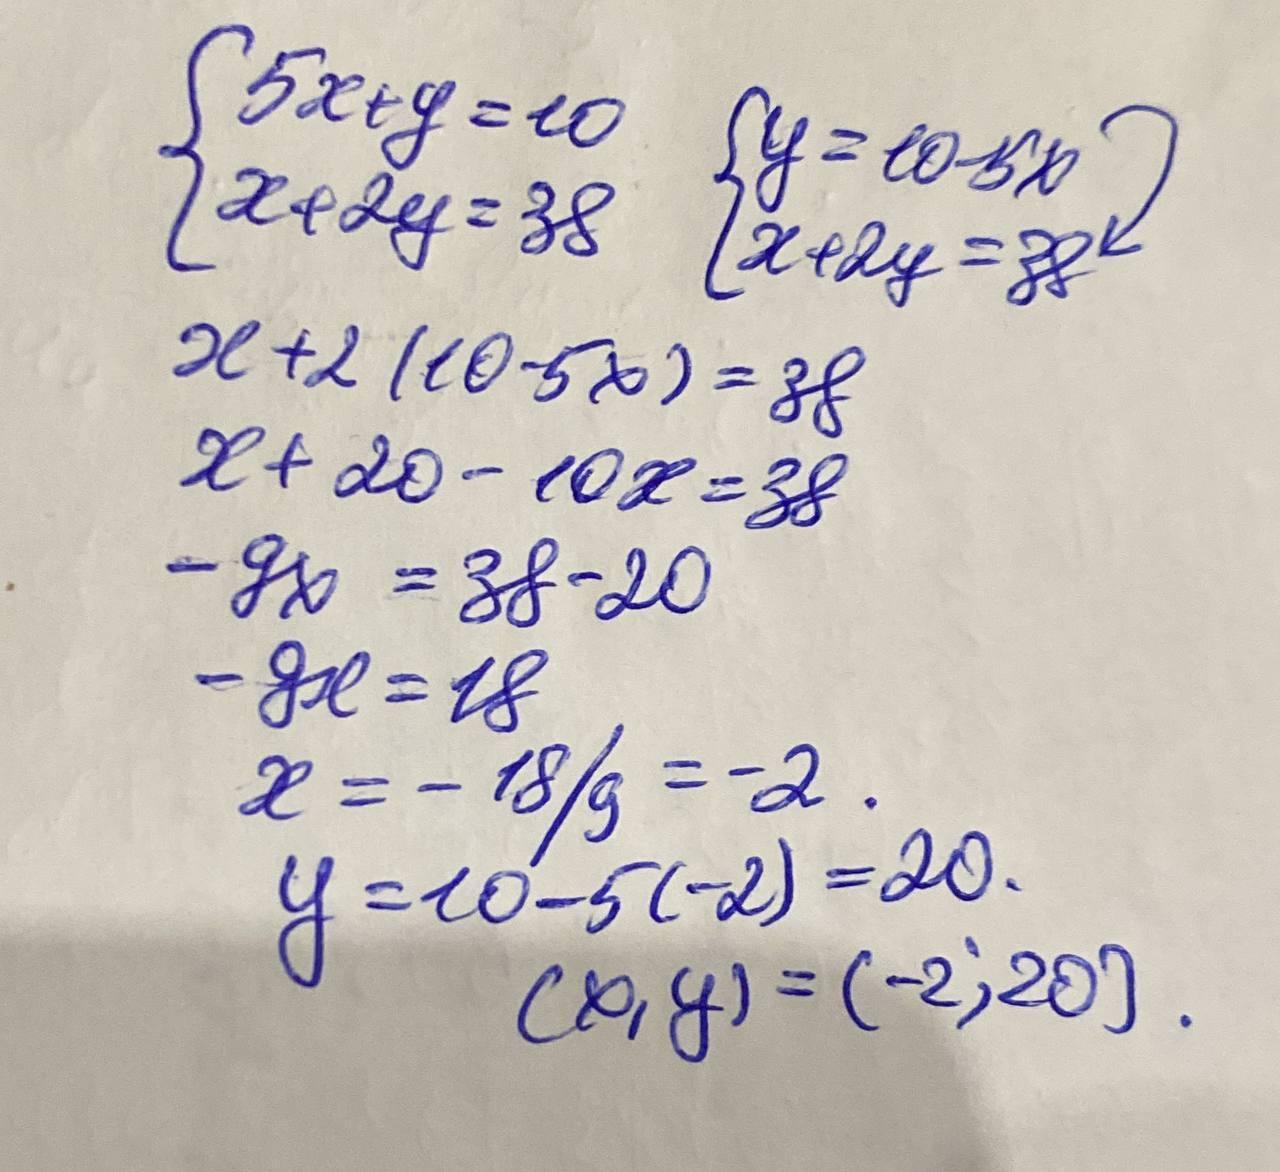 {5x+y=10
x+2y=38
{y=10-5x
x+2y=38
x+2(10-5x)=38
x+20-10x=38
-9x=38-20
-9x=18
x=-18/9=-2.
y=10-5(-2)=20.
(x,y)=(-2;20).